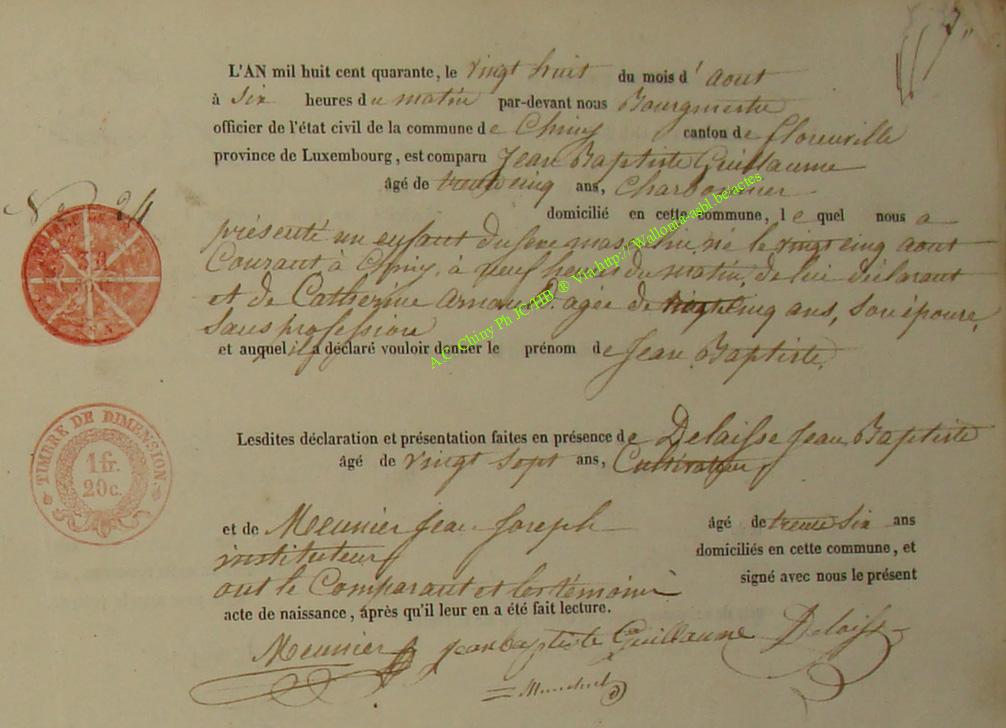 7
L'AN mil huit cent quarante, le vingt huit du mois d' aout
à six heures du matin par-devant nous Bourgmestre
officier de l'état civil de la commune de Chiny canton de florenville
province de Luxembourg, est comparu Jean Baptiste Guillaume
âgé de trente cinq ans, Charbonnier
domicilié en cette commune, le quel nous a
N° 24
présenté un enfant du sexe masculin né le vingt cinq aout
Courant à Chiny, à neuf heures du matin, de lui déclarant
et de Catherine Arnould agée de vingt cinq ans, son épouse,
sans profession
et auquel il a déclaré vouloir donner le prénom de Jean Baptiste.
A.C. Chiny Ph JC/HB ® Via http://Wallonia-asbl.be/actes
TIMBRE DE DIMENSION.
1 fr.
20 c.
Lesdites déclaration et présentation faites en présence de Delaisse Jean Baptiste
âgé de vingt sept ans, Cultivateur,
et de Meunier Jean Joseph âgé de trente six ans
instituteur domiciliés en cette commune, et
ont le Comparant et les témoins signé avec nous le présent
acte de naissance, après qu'il leur en a été fait lecture.
Meunier Jean baptiste Guillaume Delaisse